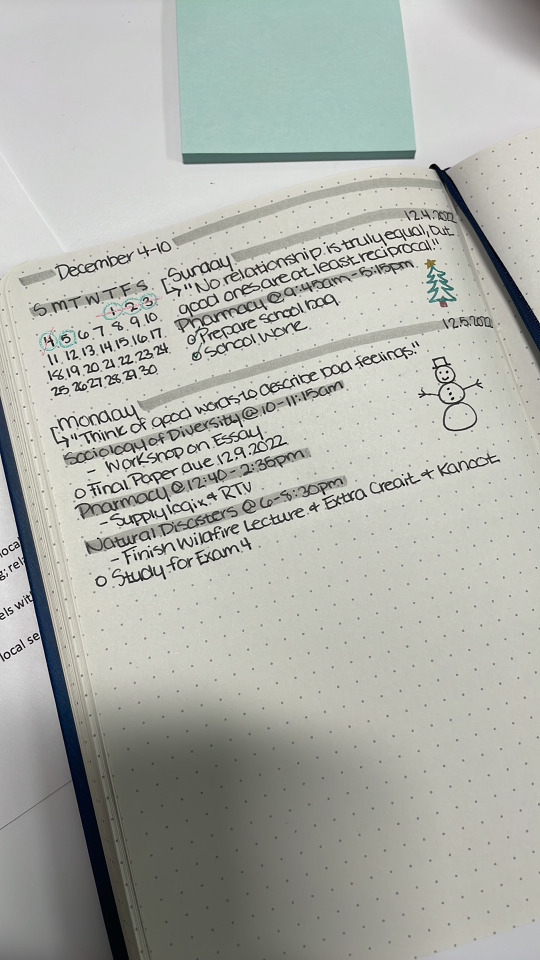 December 4-10
S M T W T F S
1 2 3
4 5 6 7 8 9 10
11 12 13 14 15 16 17
18 19 20 21 22 23 24
25 26 27 28 29 30
12.4.2022
[Sunday
↳"No relationship is truly equal, but
good ones are at least reciprocal."
Pharmacy @ 9:45am - 5:15pm
Prepare School bag
School work
12.5.2022
[Monday
↳"Think of good words to describe bad feelings."
Sociology of Diversity @ 10-11:15am
- Workshop on Essay
O Final Paper due 12.9.2022
Pharmacy @ 12:40 - 2:35pm
- Supplylogix + RTV
Natural Disasters @ 6-8:30pm
- Finish Wildfire Lecture + Extra Credit + Kahoot
O Study for Exam 4
local
g; rela
els wit
local se